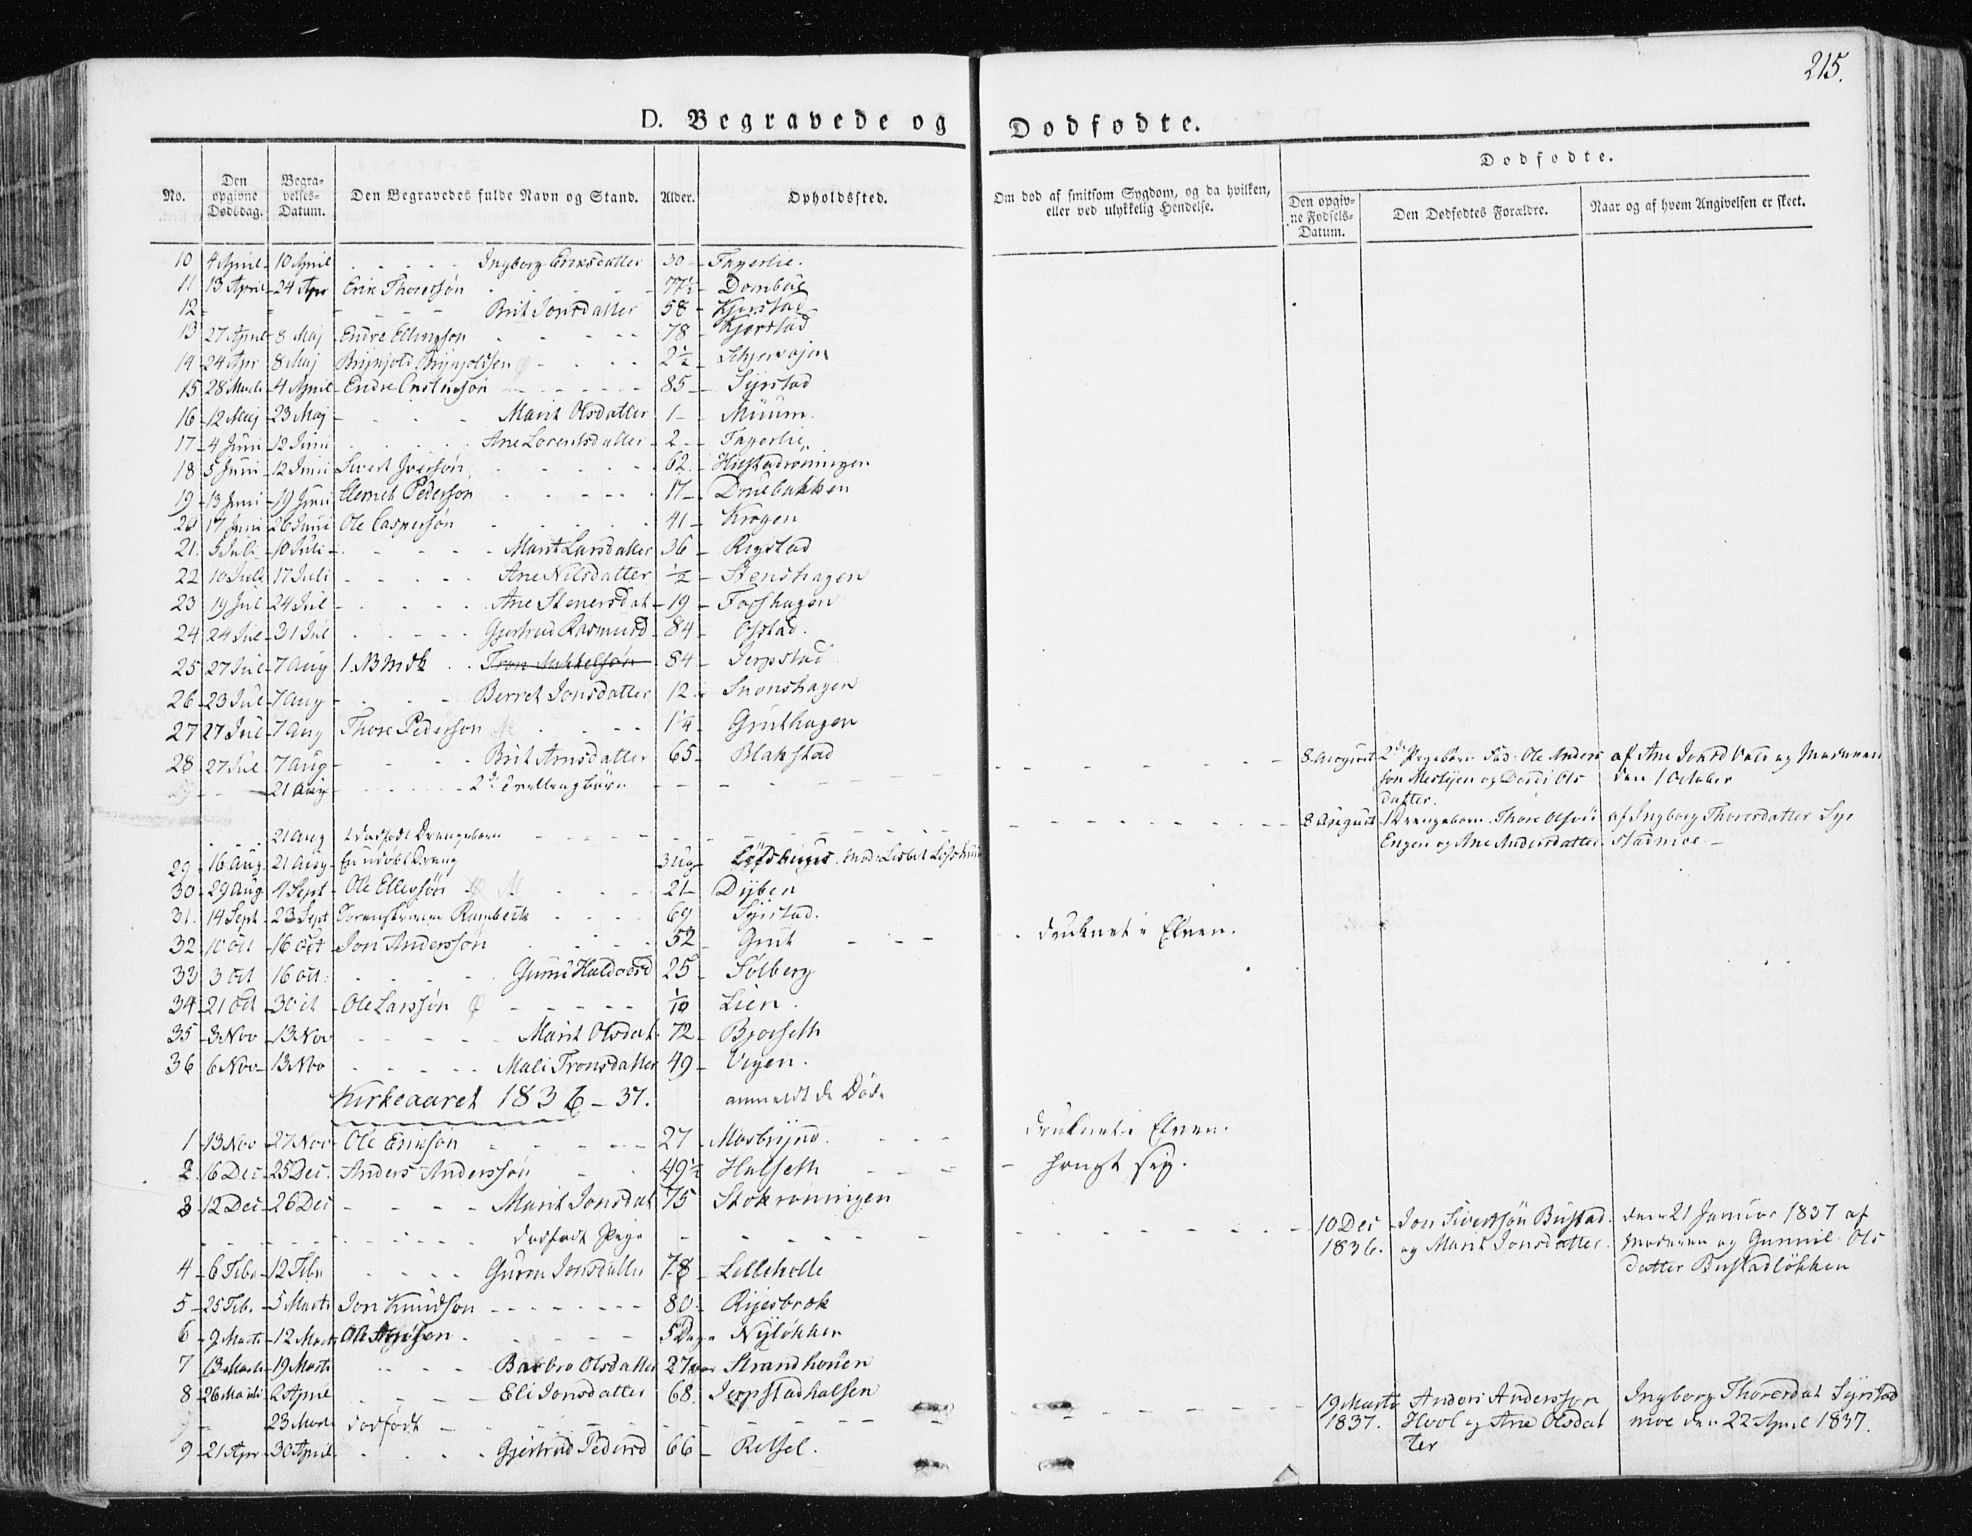 215.
D. Begravede og Dodfodte.
No. | Den opgivne Dodsdag. | Begravelses-Datum. | Den Begravedes fulde Navn og Stand. | Alder. | Opholdssted. | Om dod af smitsom Sygdom, og da hvilken, eller ved ulykkelig Hendelse. | Dodfodte. | Den opgivne Fodsels-Datum. | Den Dodfodtes Forældre. | Naar og af hvem Angivelsen er skeet.
10 4 April 10 April Ingborg Eriksdatter 30 Fagerlie.
11 13 April 24 Apr Erik Thoresøn 77½ Dombue
12 Brit Jonsdatter 58 Kjerstad
13 27 April 8 Maj Endre Ellingsøn 78 Kjerstad
14 24 Apr 8 Maj Brynjolv Brynjolvsen 2½
15 28 Marti 4 April Endre 85 Syrstad
16 12 Maj 23 Maj Marit Olsdatter 1 Muum.
17 4 Juni 12 Juni Ane Lorentsdatter 2 Fagerlie
18 5 Juni 12 Juni Sivert Iversøn 62
19 13 Juni 19 Juni Clemet Pedersøn 17 Druebakken
20 17 Juni 26 Juni Ole Caspersøn 41 Krogen
21. 5 Juli 10 Juli Marit Larsdatter 36 Rigstad
22 10 Juli 17 Juli Ane Nilsdatter ½ Stenshagen
23 19 Jul 24 Jul Ane Stenersdat 19 Foshagen
24 24 Jul 31 Jul Gjertrud Rasmusd 84 Ofstad.
25 27 Jul 7 Aug Tron Mikkelsøn 84 Jerpstad
26 23 Jul 7 Aug Berret Jonsdatter 12 Snoushagen
27 27 Jul 7 Aug Thore Pedersøn 14 Gruthagen
28 27 Jul 7 Aug Brit Arnsdatter 65 Blakstad
21 Aug 2de Tvillingbørn
8 August 2de Pigebørn Ole Andersøn og Dordi Olsdatter. af Ane Jonsd og Moderen den 1 October
21 Aug 1 dødfødt Drengebarn
8 August 1 Drengebarn. Thore Olsøn Engen og Ane Andersdatter af Ingborg Thoresdatter Syrstadmoe
29 16 Aug. 21 Aug En udøbt Dreng 3 Ug
30 29 Aug 4 Sept Ole Ellefsøn 21 Dyben
31. 14 Sept 23 Sept Rambech 69 Syrstad.
32 10 Oct 16 Oct Jon Andersson 52 Grut druknet i Elven.
33 3 Oct 16 Oct. Guru Haldorsd 25 Solberg
34 21 Oct 30 Oct Ole Larssøn 1/10 Lien.
35 3 Nov 13 Nov Marit Olsdat 72 Bjørseth
36 6 Nov 13 Nov Mali Tronsdatter 49 Vigen.
Kirkeaaret 1836-37. anmeldte Døde
1 13 Nov 27 Nov Ole Eriksøn 27 Mosbrynd. druknet i Elven.
2 16 Dec 25 Dec. Anders Anderssøn 49½ Halseth hengt sig.
3 12 Dec 26 Dec Marit Jonsdat 75 Stokroningen
dødfødt Pige
10 Dec 1836. Jon Sivertsøn Bustad og Marit Jonsdatter. den 21 Januar 1837 af Moderen og Gunnil Olsdatter Bustadløkken
4 6 Febr 12 Febr Guron Jonsdatter 78 Lelleholte
5 25 Feb. 5 Marti Jon Knudson 80 Rijesbrok
6 7 Marts 12 Marts Ole 5 Dage Nyløkken
7 13 Marti 19 Marti Barbro Olsdatter 27 Strandhouen
8 26 Marti 2 April Eli Jonsdatter 68 Jerpstadhalsen
23 Marti dødfødt
19 Marti 1837. Anders Andersson Hvol og Ane Olsdatter Ingborg Thoresdat Syrstadmoe den 22 April 1837.
9 21 Apr 30 April Gjertrud Pedersd 66 Retsel.